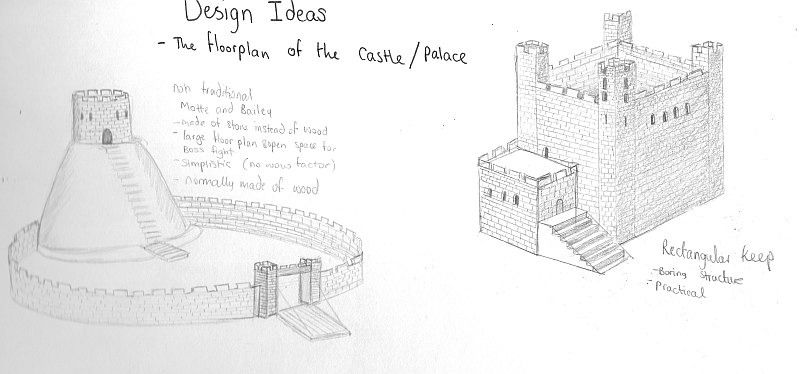 Design Ideas
- The floorplan of the Castle/Palace
non traditional
Motte and Bailey
- made of stone instead of wood
- large floor plan & open space for
Boss fight
- simplistic (no wow factor)
- normally made of wood
Rectangular Keep
- Boring Structure
- Practical